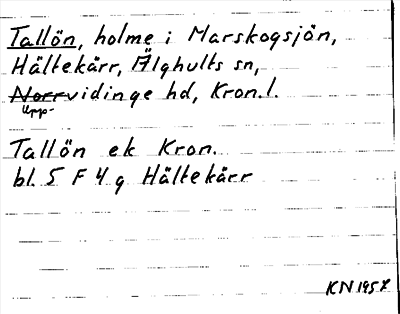 Tallön, holme i Marskogsjön,
Hältekärr, Älghults sn,
Norrvidinge hd, Kron. l.
Upp-
Tallön ek Kron.
bl. 5 F 4 g Hältekärr
KN 1957